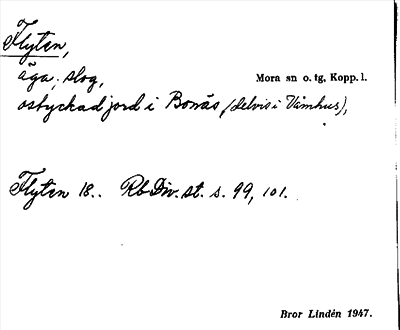 Flyten,
äga, slog,
Mora sn o. tg, Kopp. l.
ostyckad jord i Bonäs (delvis i Våmhus),
Flyten 18.. Rb Div. st. s. 99, 101.
Bror Lindén 1947.